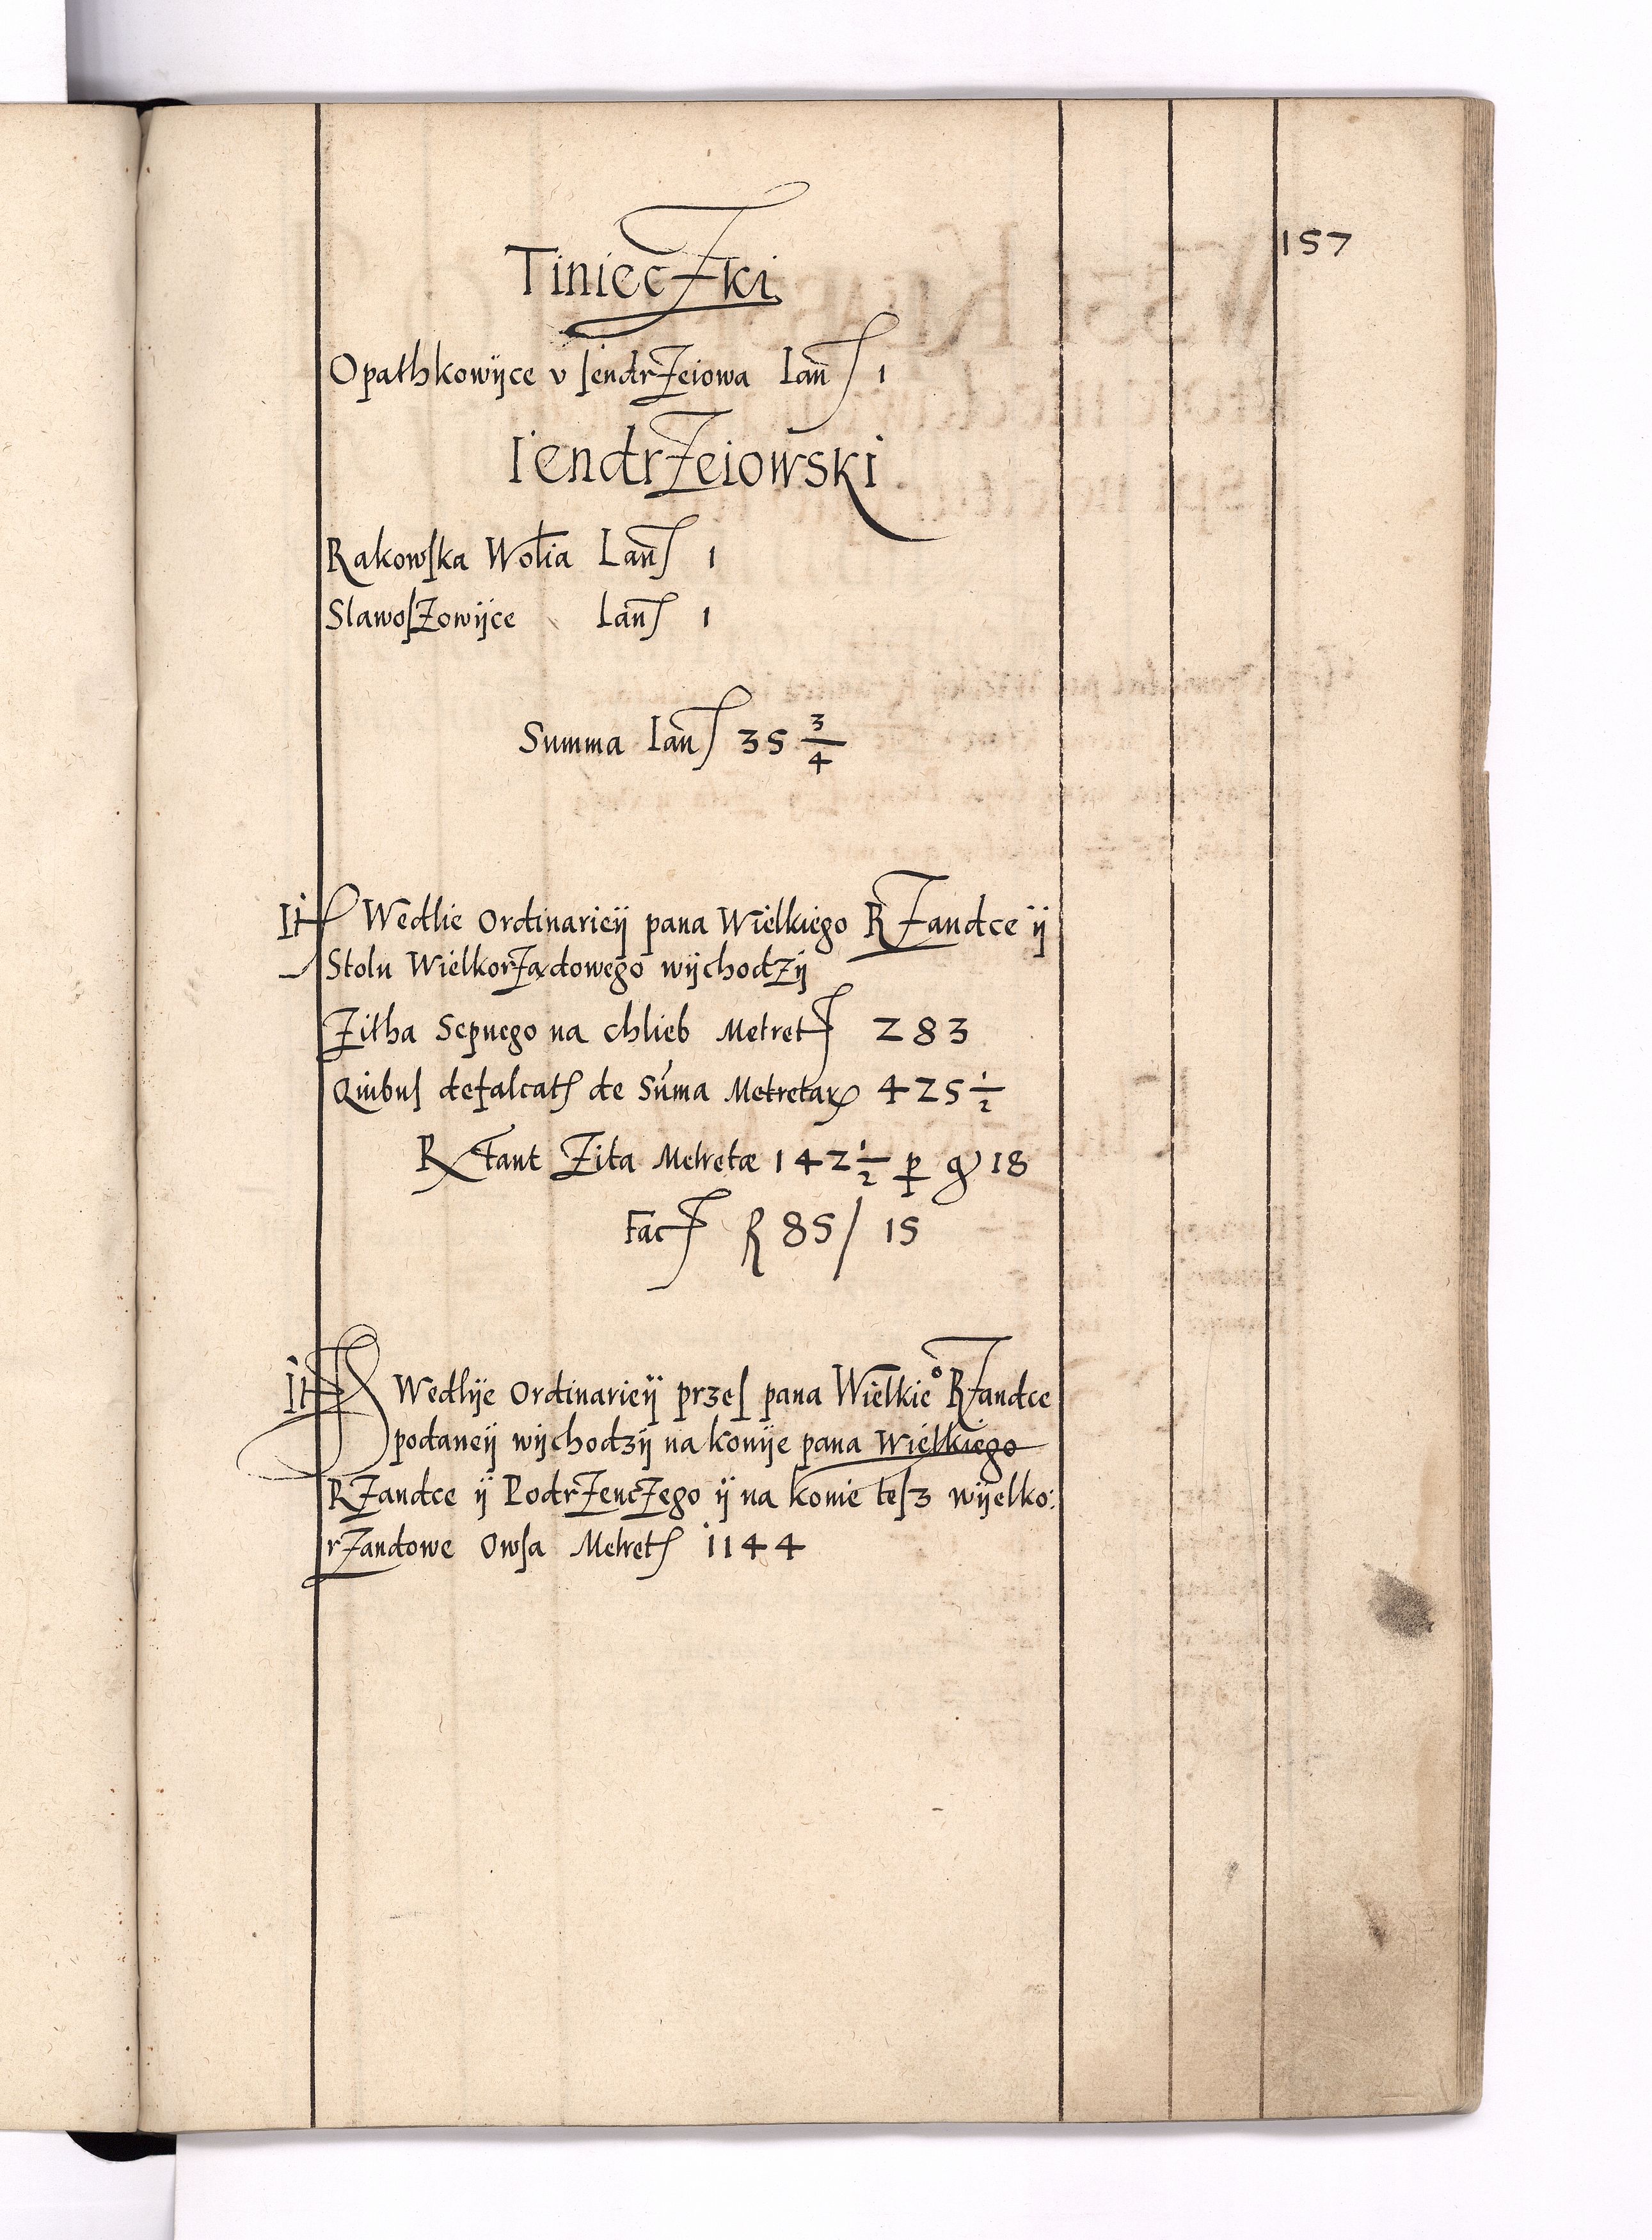 157
TiniecZki
Opathkowÿce v IendrZeiowa Lanſ 1
IendrZeiowski
Rakowſka Wolia Lanſ 1
SlawoſZowÿce Lanſ 1
Summa Lanſ 35 3/4
It Wedlie Ordinarieÿ pana Wielkiego RZandce ÿ
Stolu WielkorZadowego wÿchodZÿ
Zitha Sepnego na chlieb Metret 283
Quibuſ defalcatſ de Sūma Metretarꝝ 425 1/2
Rxtant Zita Metretæ 142 1/2 ꝑ gͬ 18
Fact fl 85/ 15
It Wedlÿe Ordinarieÿ przeſ pana Wielkie° RZandce
podaneÿ wÿchodzÿ na konÿe pana Wielkiego
RZandce ÿ PodrZencZego ÿ na konie teſz wÿelko:
rZandowe Owſa Metretſ 1144